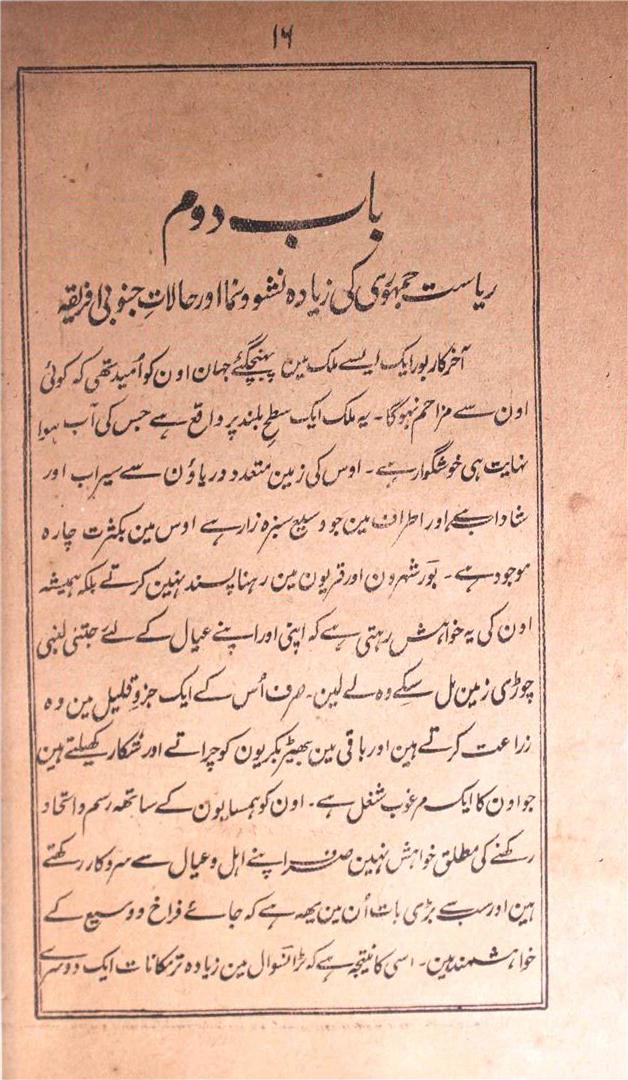 ۱۶
باب دوم
ریاست جمہوری کی زیادہ نشوونما اور حالاتِ جنوبی افریقہ
آخرکار بور ایک ایسے ملک مین پہنچگئے جہان اون کو اُمید تھی کہ کوئی
اون سے مزاحم نہوگا۔ یہ ملک ایک سطحِ بلند پر واقع ہے جس کی آب ہوا
نہایت ہی خوشگوار ہے۔ اوس کی زمین متعدد دریاؤن سے سیراب اور
شاداب ہے اور اطراف مین جو وسیع سبزہ زار ہے اوس مین بکثرت چارہ
موجود ہے۔ بَور شہرون اور قریون مین رہنا پسند نہین کرتے بلکہ ہمیشہ
اون کی یہ خواہش رہتی ہے کہ اپنی اور اپنے عیال کے لئے جتنی لنبی
چوڑی زمین مل سکے وہ لے لین۔ صرف اُس کے ایک جزوِ قلیل مین وہ
زراعت کرتے ہین اور باقی مین بھیڑ بکریون کو چراتے اور شکار کھیلتے ہین
جو اون کا ایک مرغوب شغل ہے۔ اون کو ہمسایون کے ساتھہ رسم و اتحاد
رکھنے کی مطلق خواہش نہین صرف اپنے اہل و عیال سے سروکار رکھتے
ہین اور سب سے بڑی بات اُن مین یھہ ہے کہ جائے فراخ و وسیع کے
خواہشمند ہین۔ اسی کا نتیجہ ہے کہ ٹرانسوال مین زیادہ تر مکانات ایک دوسرے